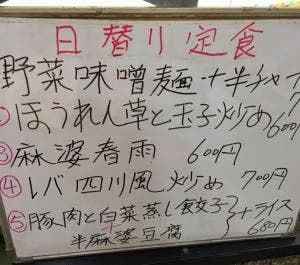 日替り定食
野菜味噌麺+半チャー
ほうれん草と玉子炒め 600円
③麻婆春雨 600円
④レバ四川風炒め 700円
⑤豚肉と白菜蒸し食餃子
+
半麻婆豆腐
+ライス
680円